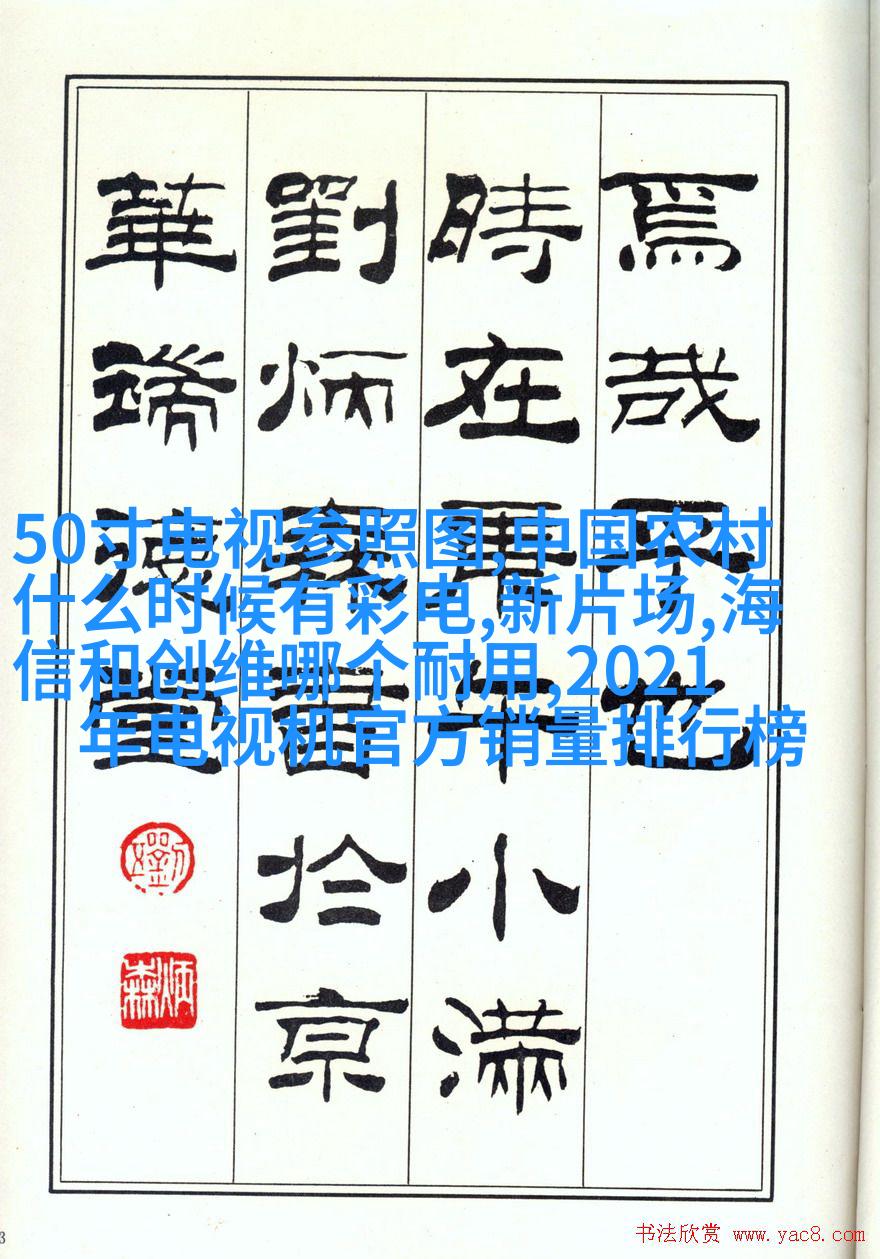 焉哉乎也
時在庚午小滿
劉炳森書於京
華堂
50寸电视参照图,中国农村
什么时候有彩电,新片场,海
信和创维哪个耐用,2021
年电视机官方销量排行榜
炳森
书法欣赏 www.yac8.com
3